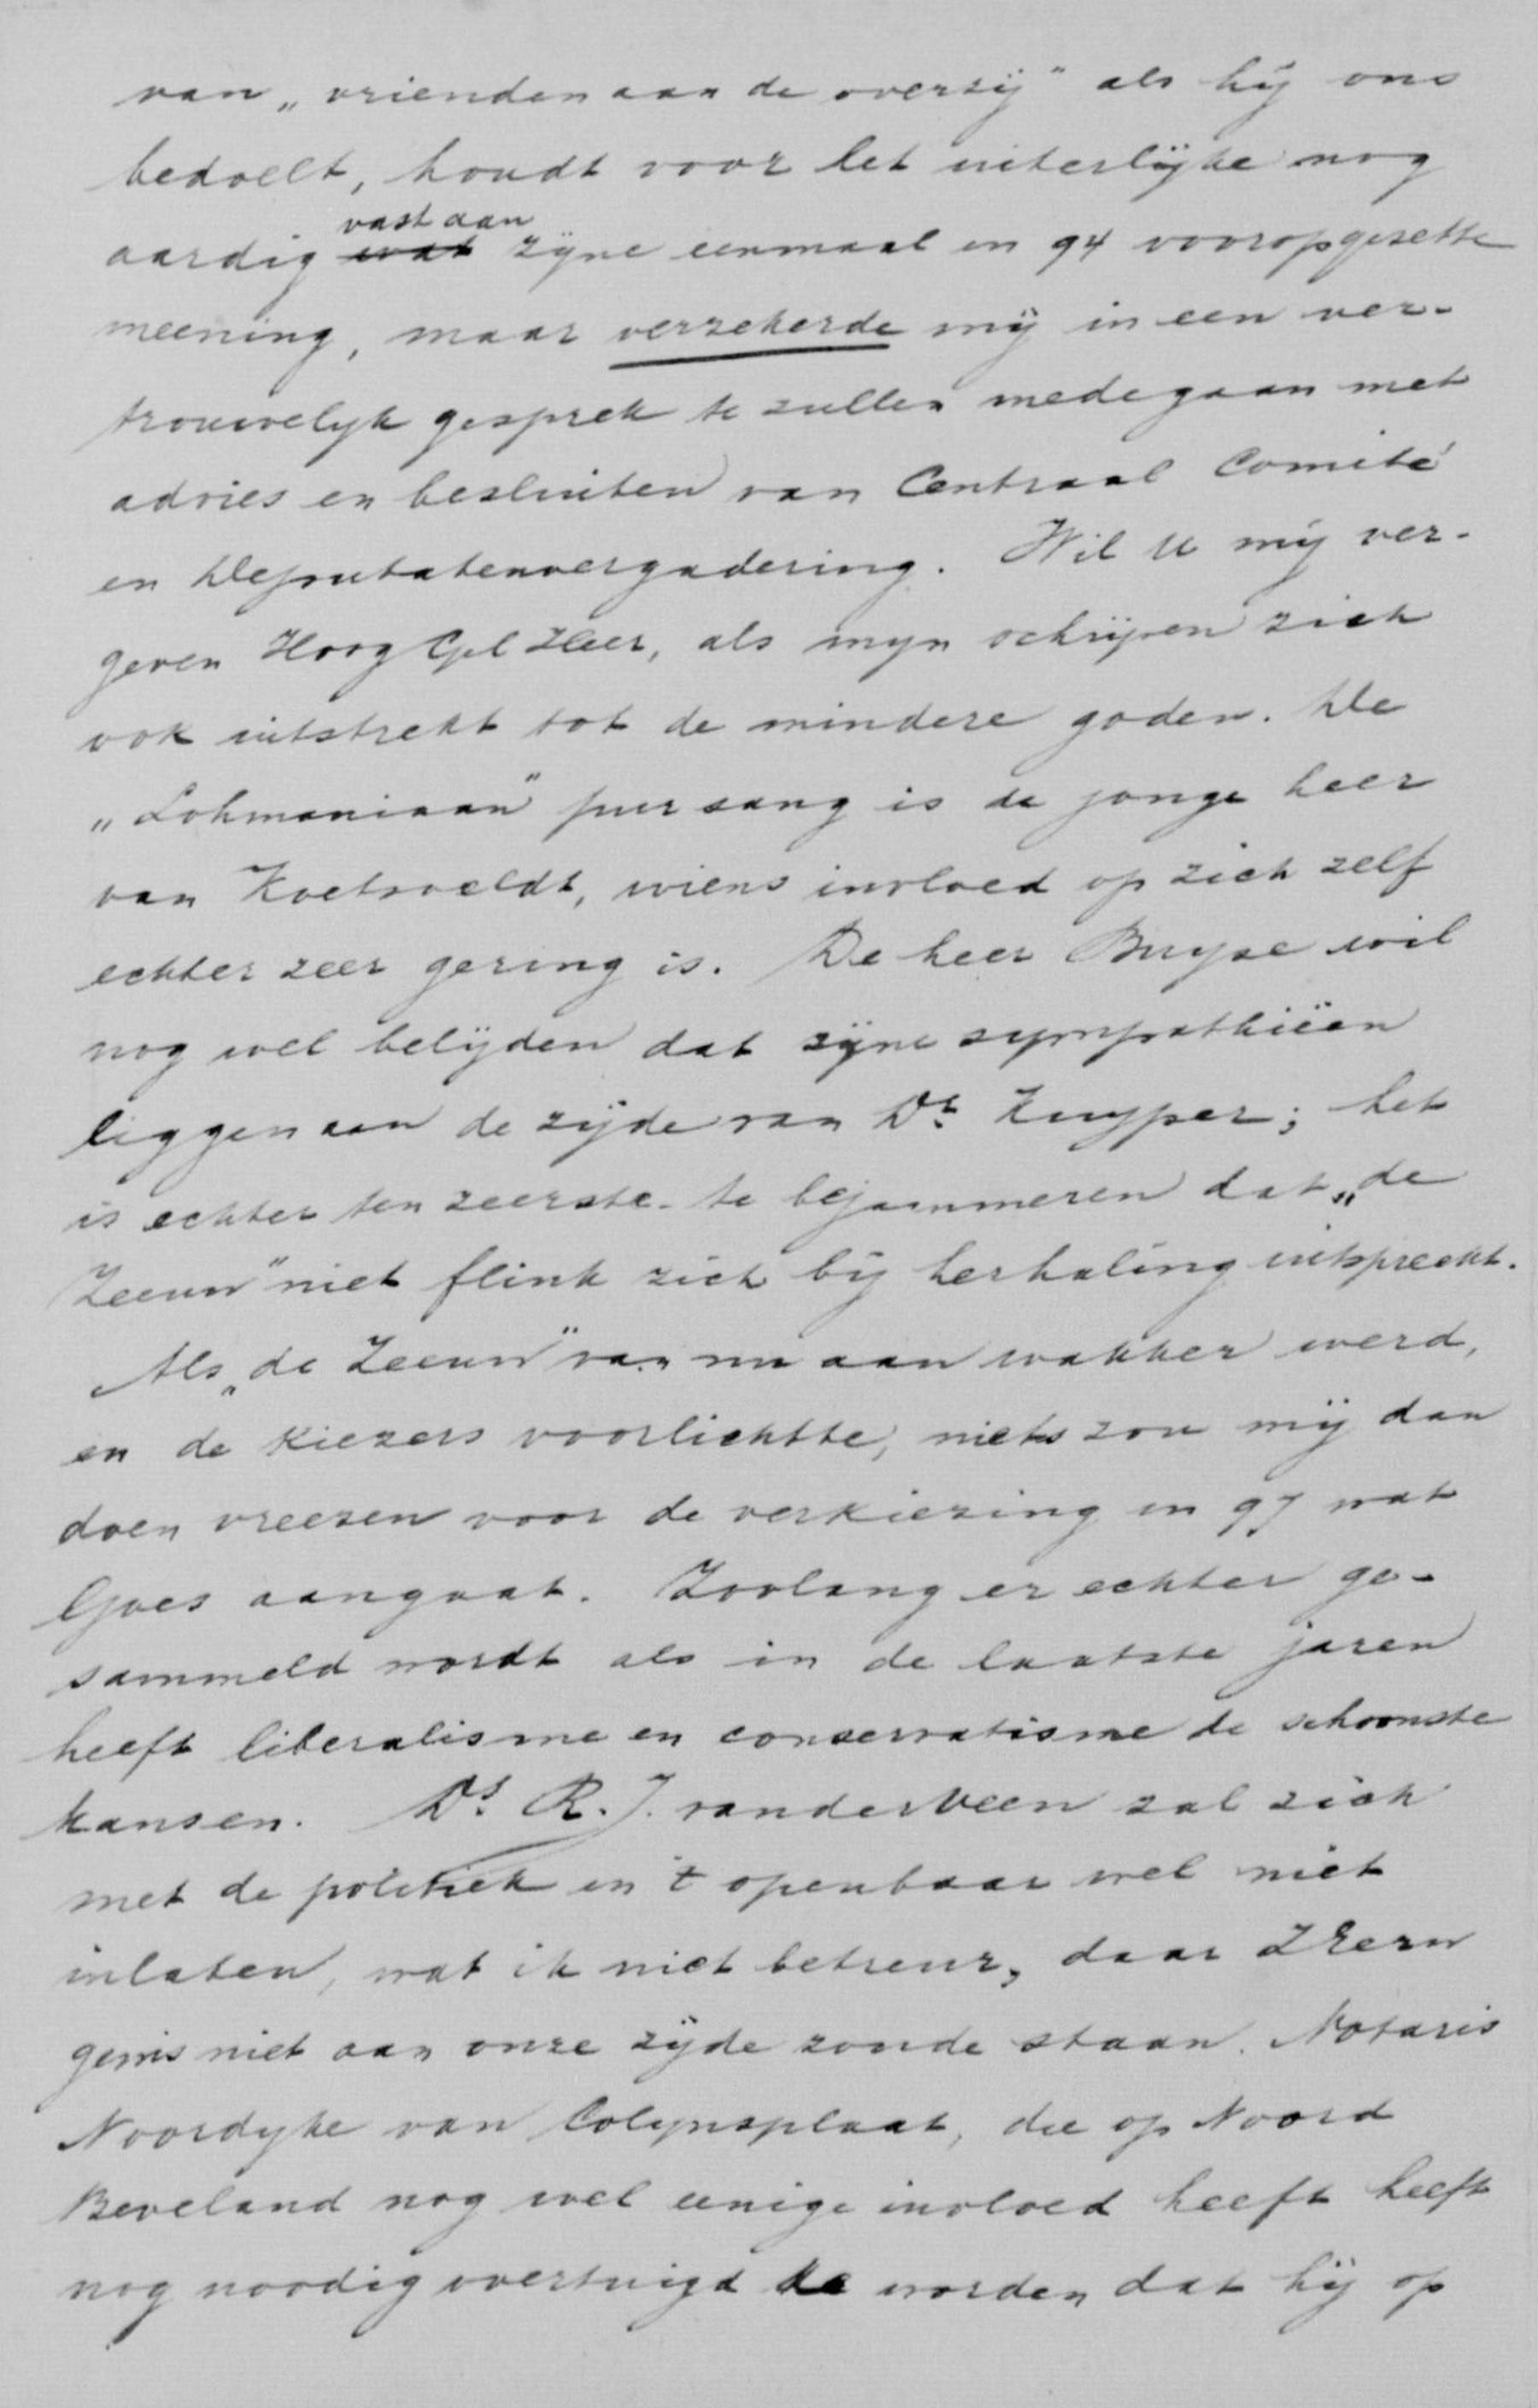 van „vrienden aan de overzij" als hij ons
bedoelt, houdt voor het uiterlijke nog
aardig wat vast aan zijne eenmaal in 94 vooropgezette
meening, maar verzekerde mij in een ver-
trouwelijk gesprek te zullen medegaan met
advies en besluiten van Centraal Comité
en Deputatenvergadering. Wil U mij ver-
geven Hoog Gel Heer, als mijn schrijven zich
ook uitstrekt tot de mindere goden. De
„Lohmaniaan" pur sang is de jonge heer
van Koetsveldt, wiens invloed op zich zelf
echter zeer gering is. De heer Buyse wil
nog wel belijden dat zijne sympathieën
liggen aan de zijde van Dr. Kuyper; het
is echter ten zeerste te bejammeren dat „de
Zeeuw" niet flink zich bij herhaling uitspreekt.
Als „de Zeeuw" van nu aan wakker werd,
en de kiezers voorlichtte, niets zou mij dan
doen vreezen voor de verkiezing in 97 wat
Goes aangaat. Zoolang er echter ge-
sammeld wordt als in de laatste jaren
heeft liberalisme en conservatisme de schoonste
kansen. Ds. R. J. van der Veen zal zich
met de politiek in 't openbaar wel niet
inlaten, wat ik niet betreur, daar ZEerw
gewis niet aan onze zijde zoude staan. Notaris
Noordijke van Colijnsplaat, die op Noord
Beveland nog wel eenige invloed heeft heeft
nog noodig overtuigd te worden dat hij op